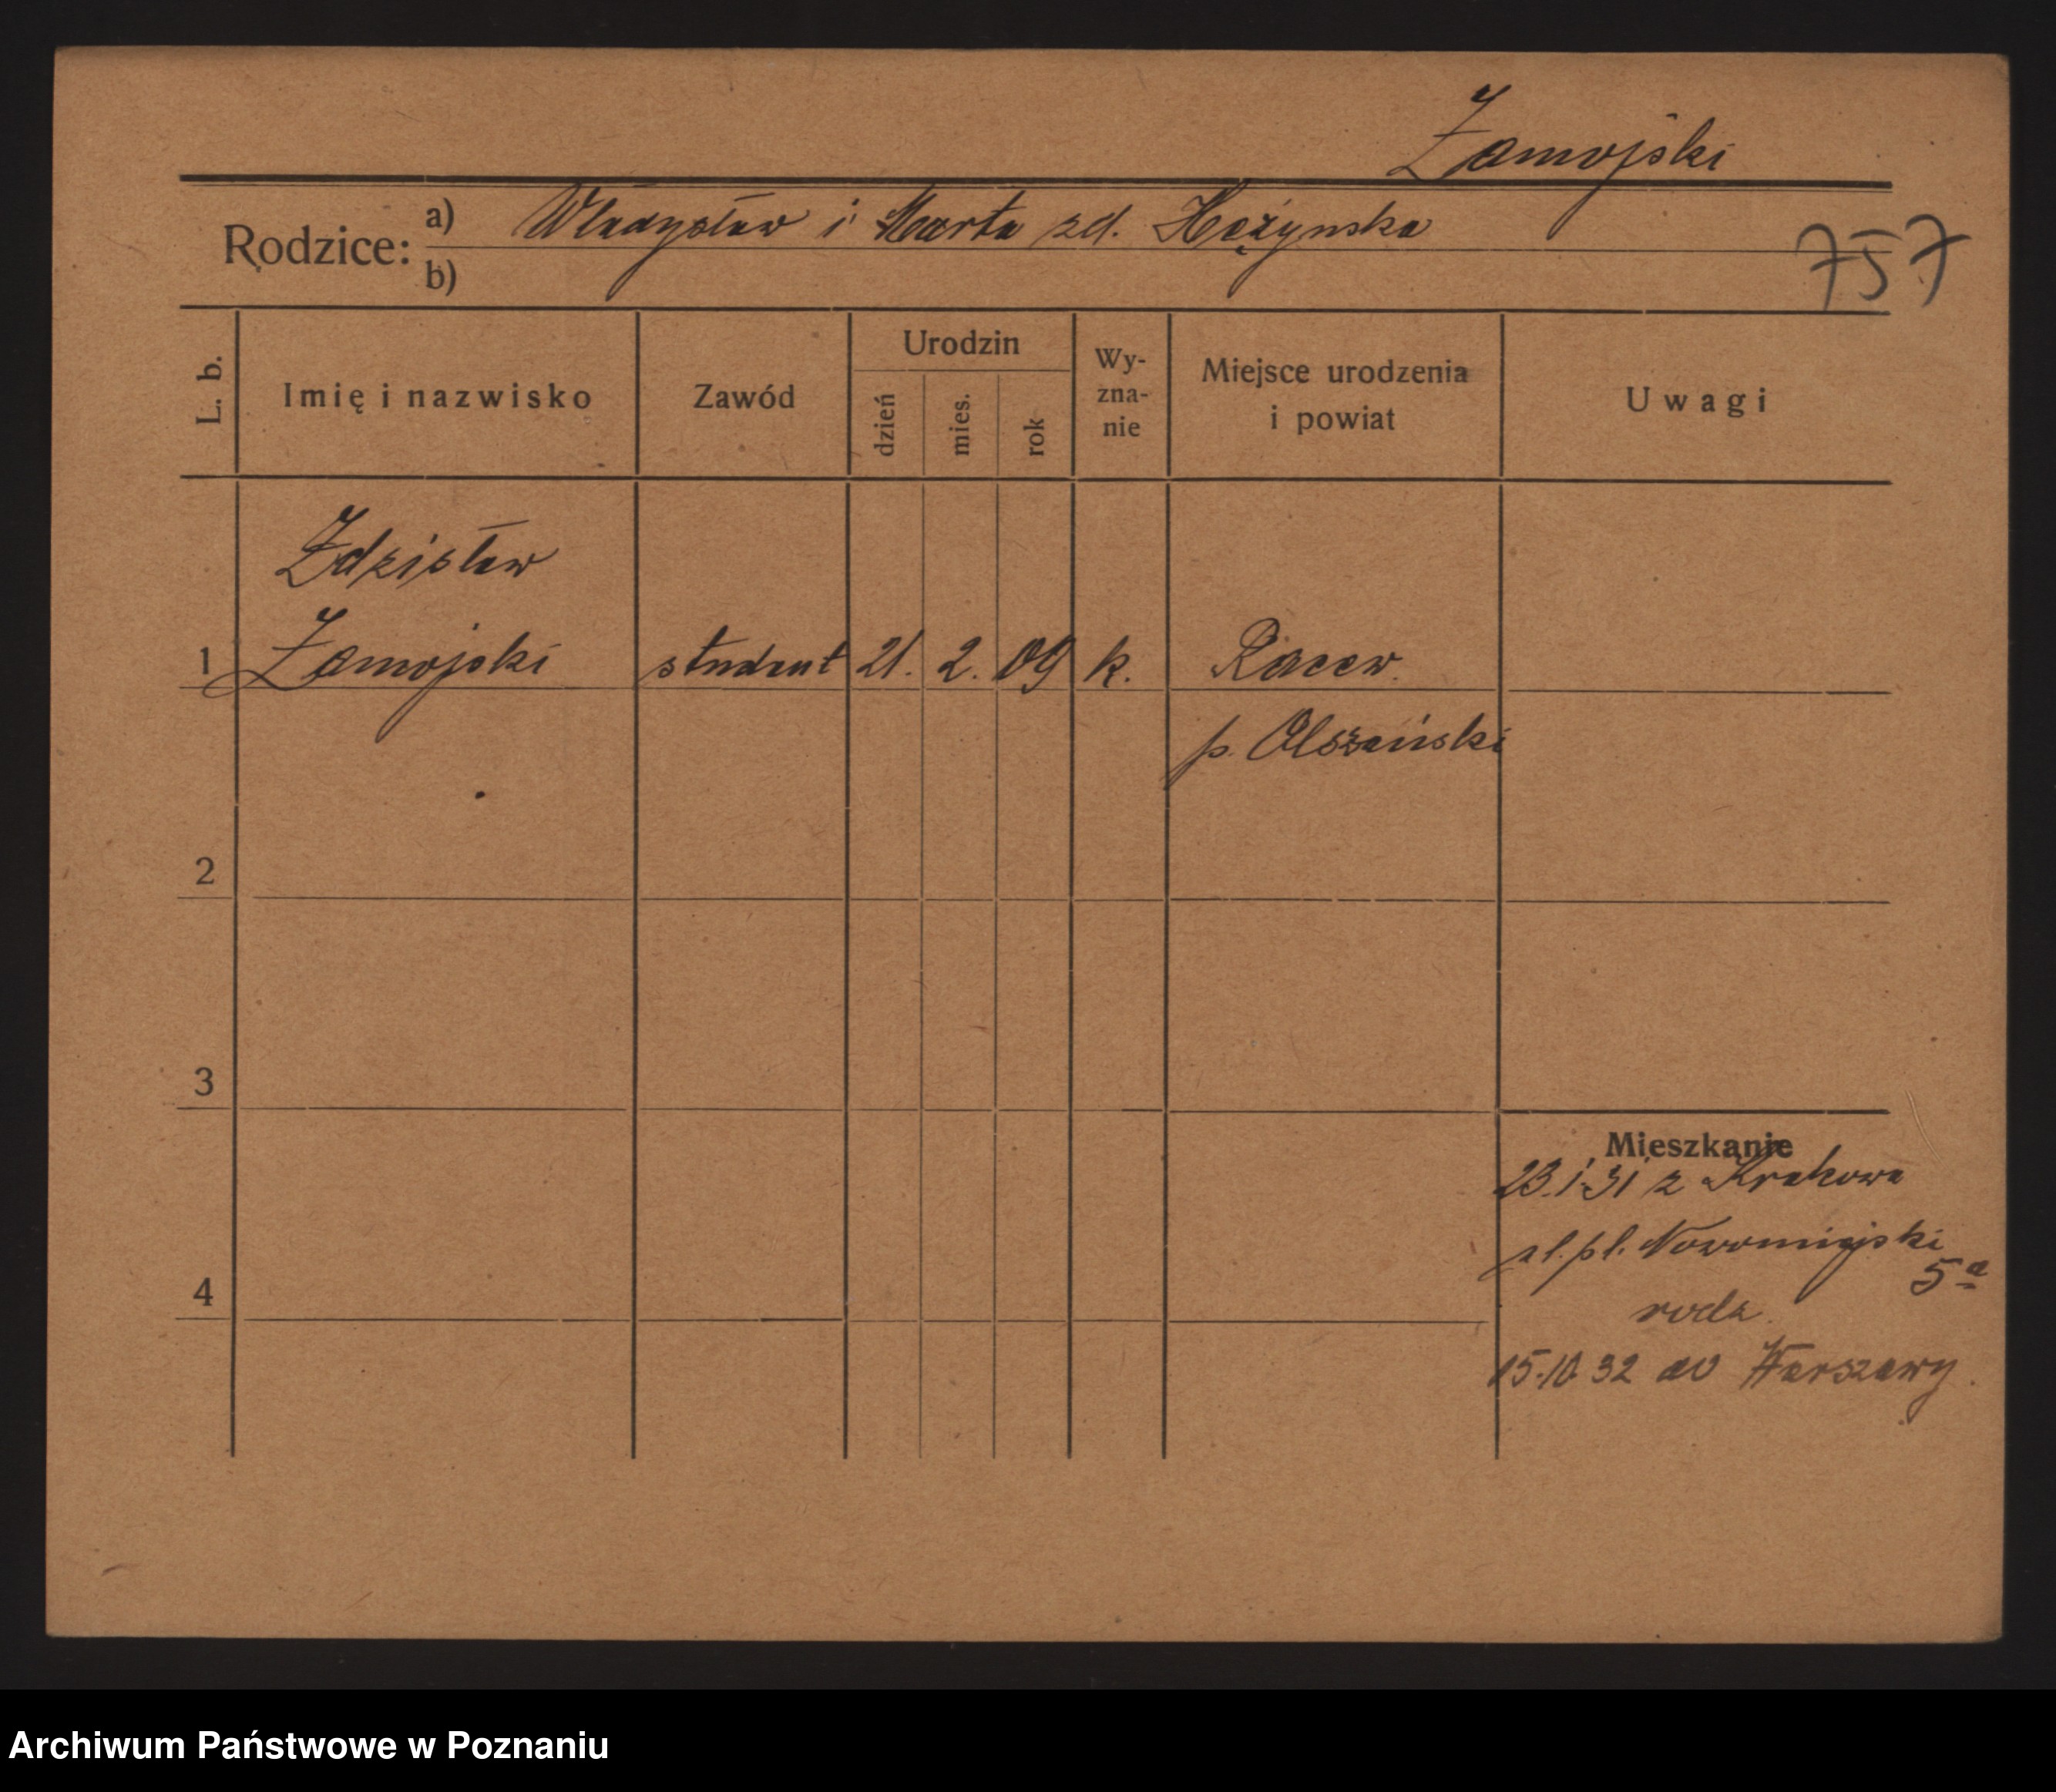 Zamojski
Rodzice: a) Władysław i Marta zd. Hężynska
b)
757
L. b.
Imię i nazwisko
Zawód
Urodzin
dzień
mies.
rok
Wy-
zna-
nie
Miejsce urodzenia
i powiat
Uwagi
Zdzisław
1 Zamojski student 21. 2. 09 k. Racew
p. Olszański
2
3
4
Mieszkanie
23.1.31 z Krakowa
pl. Nowomiejski
5a
rodz.
15.10 32 do Warszawy.
Archiwum Państwowe w Poznaniu